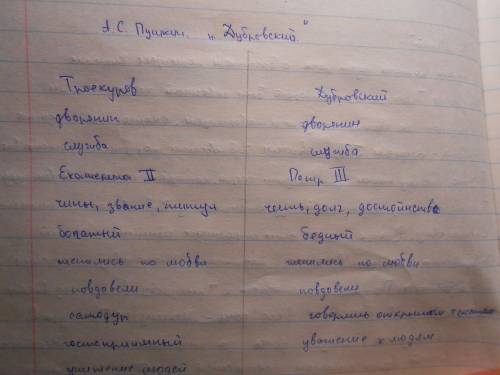 А.С. Пушкин. "Дубровский"
Троекуров Дубровский
дворянин дворянин
служба служба
Екатерина II Петр III
чины, звание, титул честь, долг, достоинство
богатый бедный
женились по любви женились по любви
повдовели повдовели
самодур говорить открытого
гостеприимный уважение к людям
унижение людей